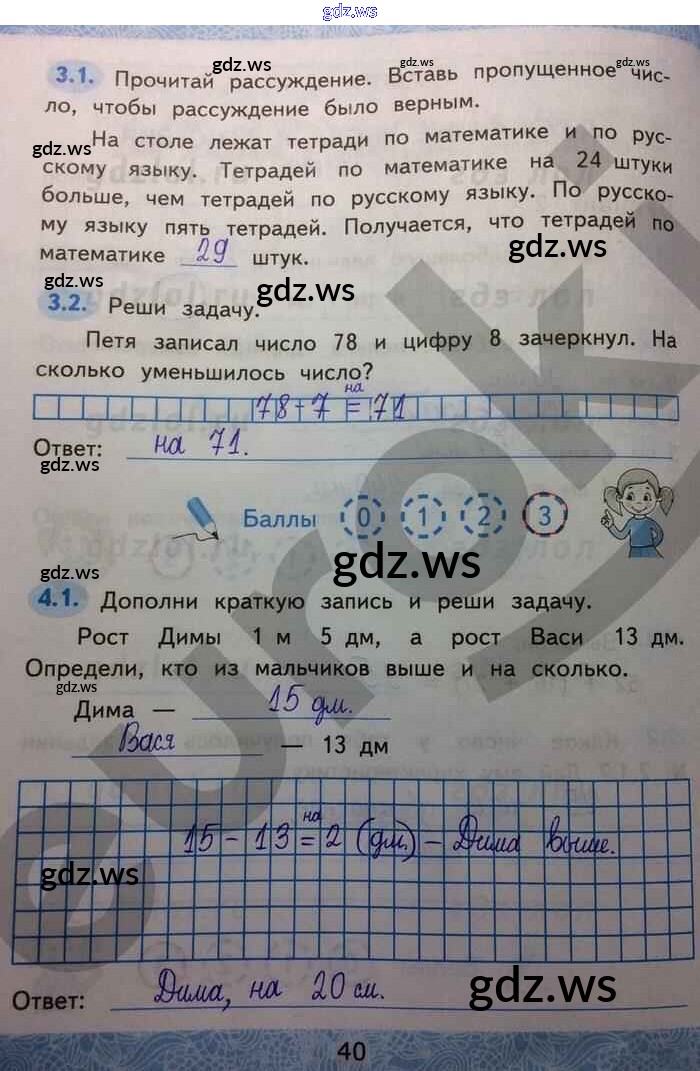 gdz.ws
3.1. Прочитай рассуждение. Вставь пропущенное чис-
ло, чтобы рассуждение было верным.
gdz.ws
gdz.ws
На столе лежат тетради по математике и по рус-
скому языку. Тетрадей по математике на 24 штуки
больше, чем тетрадей по русскому языку. По русско-
му языку пять тетрадей. Получается, что тетрадей по
математике 29 штук.
gdz.ws
gdz.ws
gdz.ws
gdz.ws
3.2. Реши задачу.
Петя записал число 78 и цифру 8 зачеркнул. На
сколько уменьшилось число?
78-7 на = 71
Ответ: на 71.
gdz.ws
Баллы 0 1 2 3
gdz.ws
gdz.ws
4.1. Дополни краткую запись и реши задачу.
Рост Димы 1 м 5 дм, а рост Васи 13 дм.
Определи, кто из мальчиков выше и на сколько.
gdz.ws
Дима — 15 дм.
Вася — 13 дм
15 - 13 на = 2 (дм.) - Дима выше.
gdz.ws
Ответ: Дима, на 20 см.
gdz.ws
40
euroki